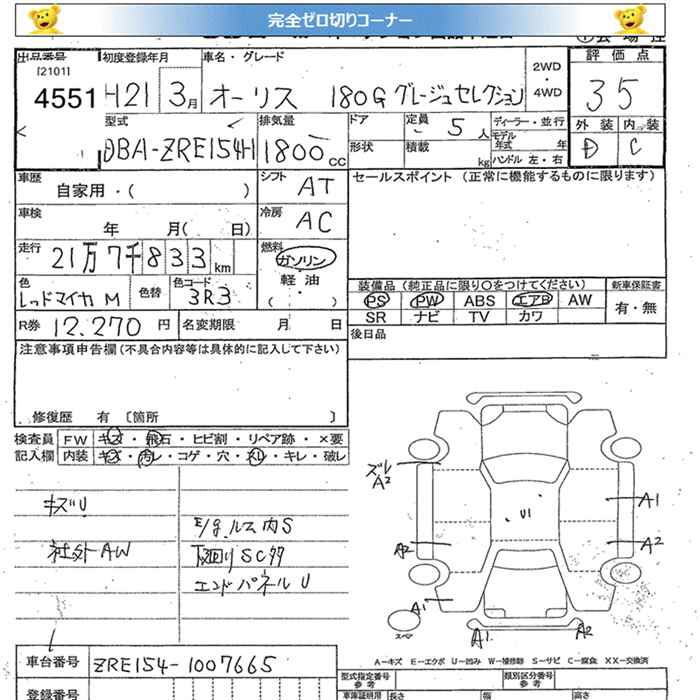 完全ゼロ切りコーナー
出品番号 初度登録年月 車名・グレード 2WD ・ 4WD 評価点
[2101]
4551 H21 3月 オーリス 180G グレージュセレクション 35
型式 排気量 ドア 定員 5人 ディーラー・並行 外装 内装
DBA-ZRE154H 1800cc 形状 積載 kg モデル年式 年 ハンドル 左・右 D C
車歴 シフト セールスポイント (正常に機能するものに限ります)
自家用・( ) AT
車検 冷房
年 月( 日) AC
走行 燃料
21万7千833km ガソリン
軽油
・( )
色 色替 色コード 装備品 (純正品に限り○をつけてください) 新車保証書
レッドマイカM 3R3 PS PW ABS エアB AW 有・無
SR ナビ TV カワ
R券 12,270円 名変期限 月 日 後日品
注意事項申告欄(不具合内容等は具体的に記入して下さい)
修復歴 有 〔箇所 〕
検査員 FW キズ・飛石・ヒビ割・リペア跡・×要
記入欄 内装 キズ・汚レ・コゲ・穴・スレ・キレ・破レ
キズU
社外AW
E/g.ルーム内S
下廻りSC多
エンドパネルU
ズレ
A2
A1
U1
A2
A2
A1
スペア
A1
A2
A-キズ E-エクボ U-凹み W-補修跡 S-サビ C-腐食 XX-交換済
車台番号 ZRE154-1007665
型式指定番号 参考 類別区分番号 参考
登録番号 車庫証明用 参考 長さ 幅 高さ